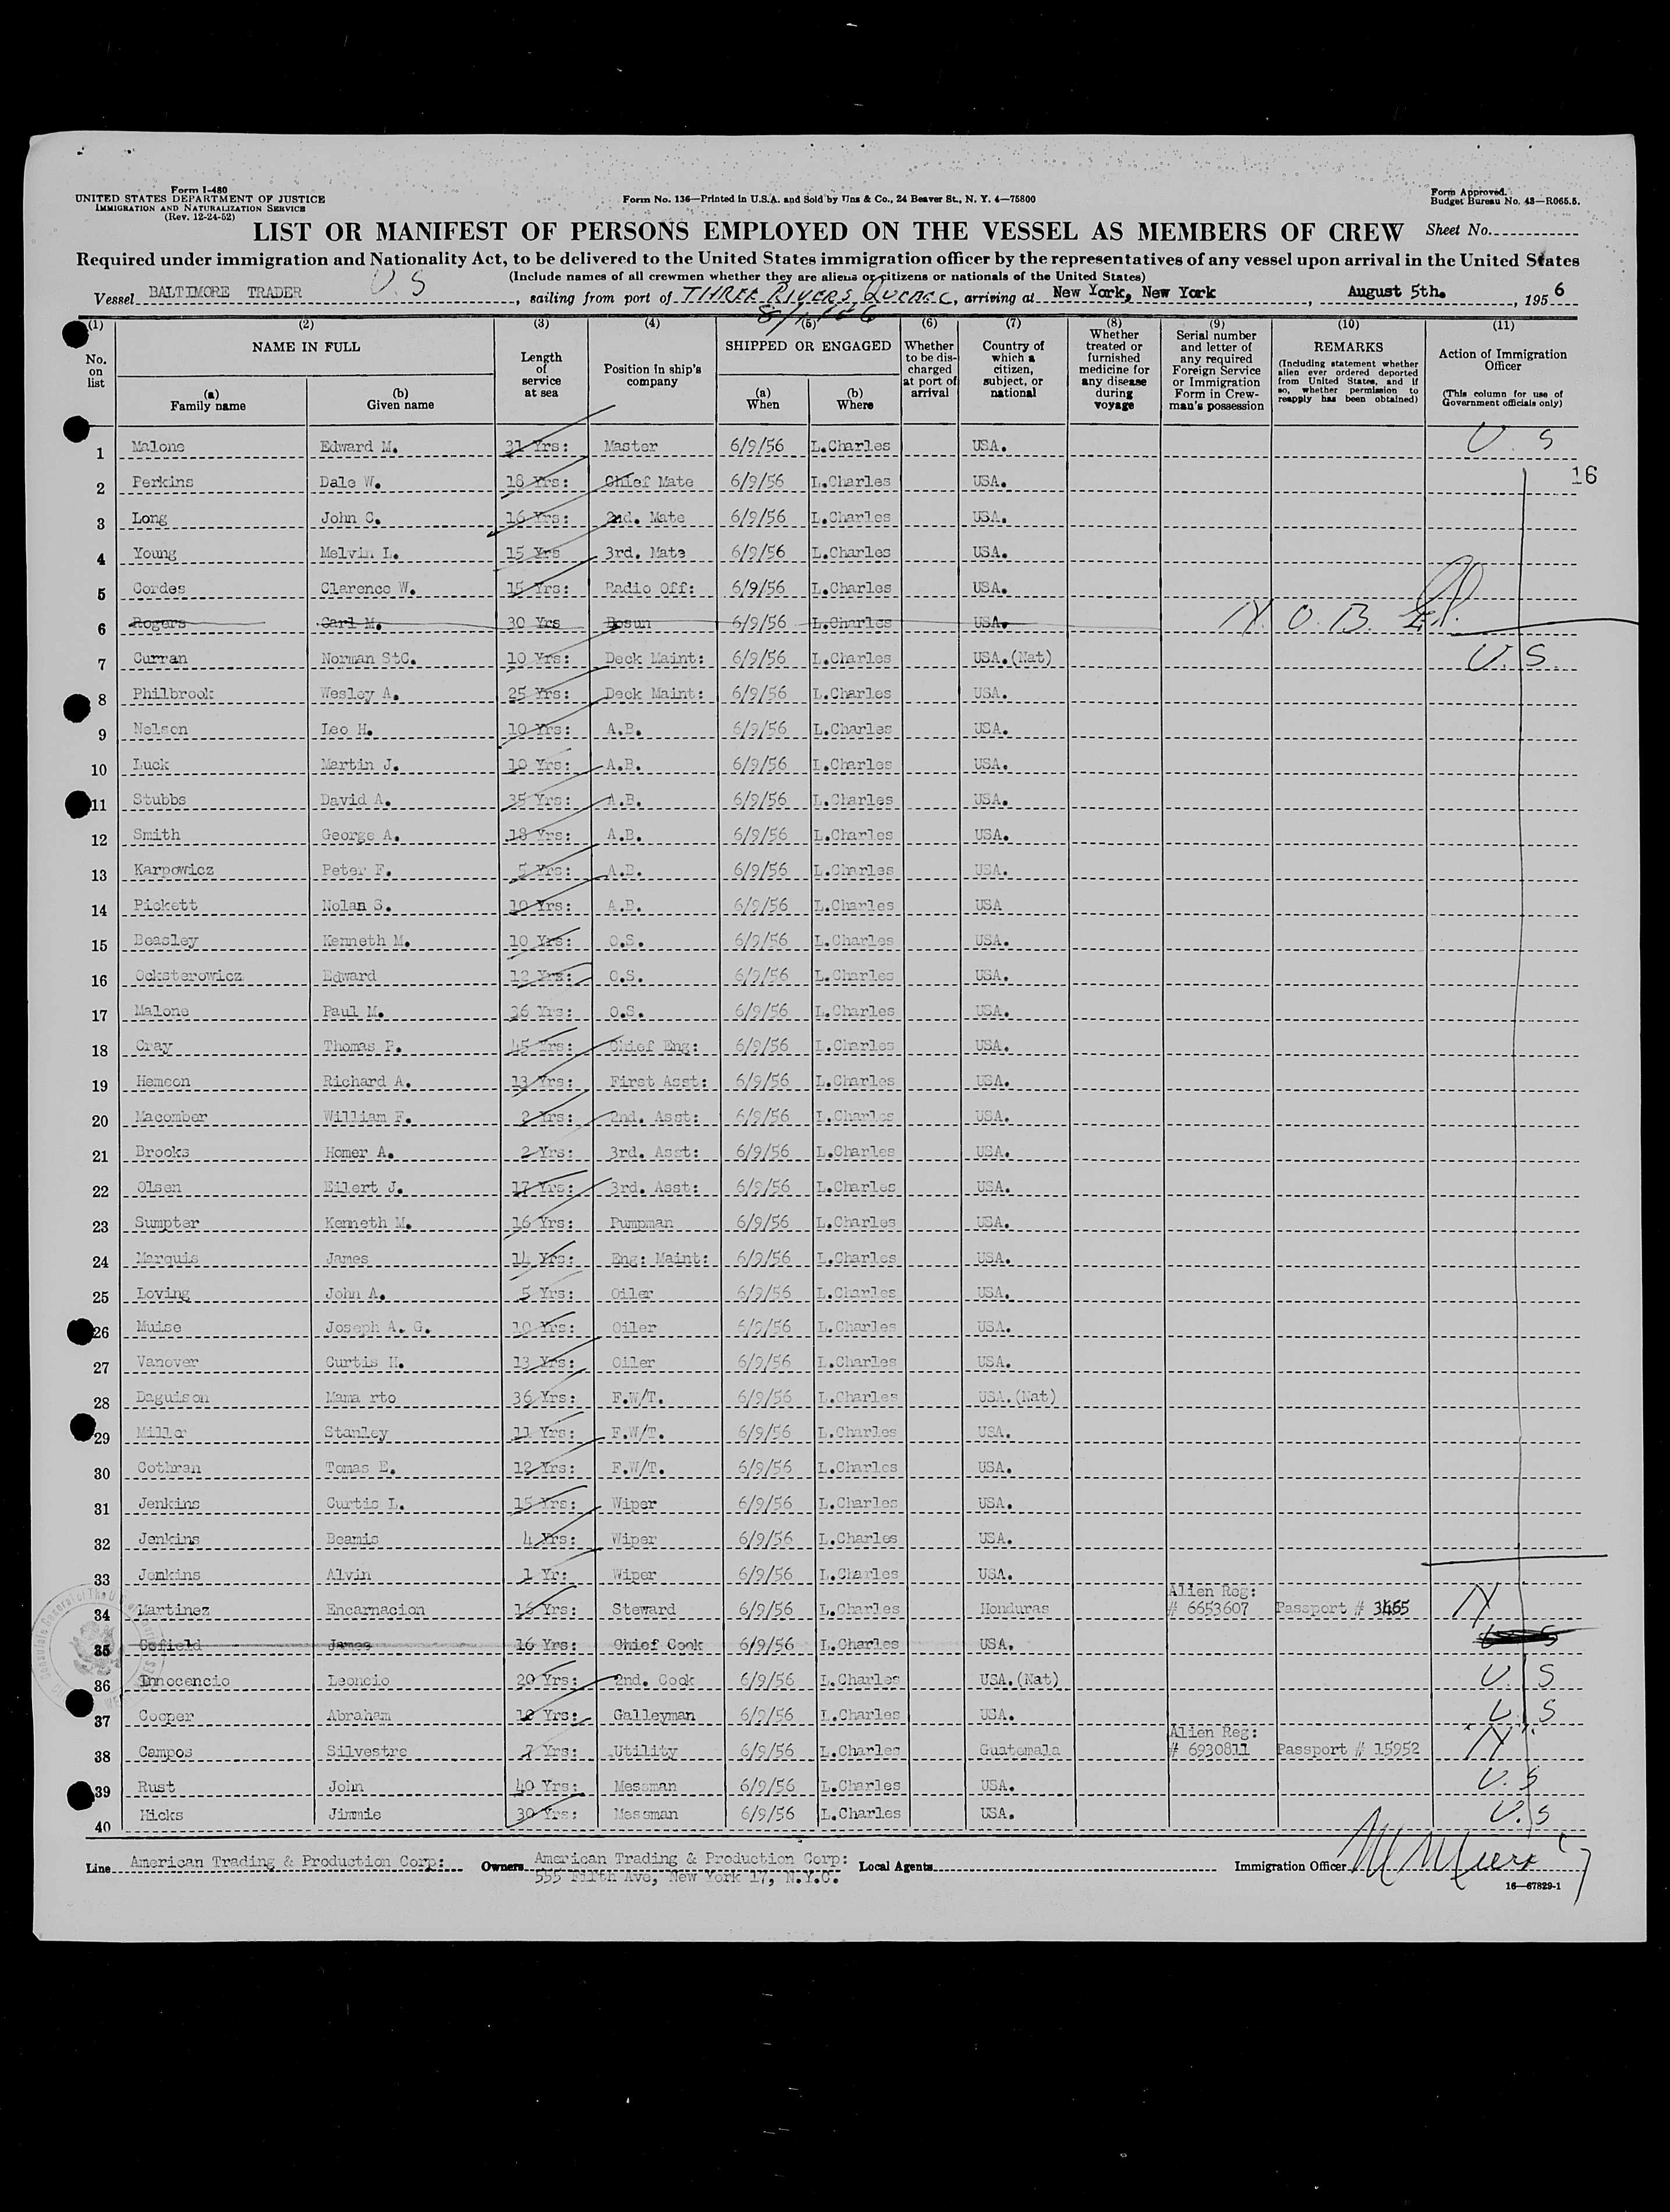 Form I-480
UNITED STATES DEPARTMENT OF JUSTICE
IMMIGRATION AND NATURALIZATION SERVICE
(Rev. 12-24-52)
Form No. 136—Printed in U.S.A. and Sold by Unz & Co., 24 Beaver St., N. Y. 4—75800
Form Approved.
Budget Bureau No. 43—R065.5.
LIST OR MANIFEST OF PERSONS EMPLOYED ON THE VESSEL AS MEMBERS OF CREW Sheet No.
Required under immigration and Nationality Act, to be delivered to the United States immigration officer by the representatives of any vessel upon arrival in the United States
(Include names of all crewmen whether they are aliens or citizens or nationals of the United States)
Vessel BALTIMORE TRADER U.S , sailing from port of THREE RIVERS, QUEBEC, arriving at New York, New York , August 5th. , 1956
(1) (2) (3) (4) (5) (6) (7) (8) (9) (10) (11)
No. on list
NAME IN FULL
(a) Family name
(b) Given name
Length of service at sea
Position in ship's company
SHIPPED OR ENGAGED
(a) When
(b) Where
Whether to be discharged at port of arrival
Country of which a citizen, subject, or national
Whether treated or furnished medicine for any disease during voyage
Serial number and letter of any required Foreign Service or Immigration Form in Crewman's possession
REMARKS
(Including statement whether alien ever ordered deported from United States, and if so, whether permission to reapply has been obtained)
Action of Immigration Officer
(This column for use of Government officials only)
1 Malone Edward M. 31 Yrs: Master 6/9/56 L.Charles USA. U. S
16
2 Perkins Dale W. 18 Yrs: Chief Mate 6/9/56 L.Charles USA.
3 Long John C. 16 Yrs: 2nd. Mate 6/9/56 L.Charles USA.
4 Young Melvin L. 15 Yrs 3rd. Mate 6/9/56 L.Charles USA.
5 Cordes Clarence W. 15 Yrs: Radio Off: 6/9/56 L.Charles USA.
6 Rogers Carl M. 30 Yrs Bosun 6/9/56 L.Charles USA. N. O. B.
7 Curran Norman StC. 10 Yrs: Deck Maint: 6/9/56 L.Charles USA.(Nat) U. S.
8 Philbrook Wesley A. 25 Yrs: Deck Maint: 6/9/56 L.Charles USA.
9 Nelson Leo H. 10 Yrs: A.B. 6/9/56 L.Charles USA.
10 Luck Martin J. 10 Yrs: A.B. 6/9/56 L.Charles USA.
11 Stubbs David A. 35 Yrs: A.B. 6/9/56 L.Charles USA.
12 Smith George A. 18 Yrs: A.B. 6/9/56 L.Charles USA.
13 Karpowicz Peter F. 5 Yrs: A.B. 6/9/56 L.Charles USA.
14 Pickett Nolan S. 10 Yrs: A.B. 6/9/56 L.Charles USA
15 Beasley Kenneth M. 10 Yrs: O.S. 6/9/56 L.Charles USA.
16 Ocksterowicz Edward 12 Yrs: O.S. 6/9/56 L.Charles USA.
17 Malone Paul M. 36 Yrs: O.S. 6/9/56 L.Charles USA.
18 Cray Thomas P. 45 Yrs: Chief Eng: 6/9/56 L.Charles USA.
19 Hemeon Richard A. 13 Yrs: First Asst: 6/9/56 L.Charles USA.
20 Macomber William F. 2 Yrs: 2nd. Asst: 6/9/56 L.Charles USA.
21 Brooks Homer A. 2 Yrs: 3rd. Asst: 6/9/56 L.Charles USA.
22 Olsen Eilert J. 17 Yrs: 3rd. Asst: 6/9/56 L.Charles USA.
23 Sumpter Kenneth M. 16 Yrs: Pumpman 6/9/56 L.Charles USA.
24 Marquis James 14 Yrs: Eng: Maint: 6/9/56 L.Charles USA.
25 Loving John A. 5 Yrs: Oiler 6/9/56 L.Charles USA.
26 Muise Joseph A. G. 10 Yrs: Oiler 6/9/56 L.Charles USA.
27 Vanover Curtis H. 13 Yrs: Oiler 6/9/56 L.Charles USA.
28 Daguison Mama rto 36 Yrs: F.W/T. 6/9/56 L.Charles USA.(Nat)
29 Miller Stanley 11 Yrs: F.W/T. 6/9/56 L.Charles USA.
30 Cothran Tomas E. 12 Yrs: F.W/T. 6/9/56 L.Charles USA.
31 Jenkins Curtis L. 15 Yrs: Wiper 6/9/56 L.Charles USA.
32 Jenkins Beamis 4 Yrs: Wiper 6/9/56 L.Charles USA.
33 Jenkins Alvin 1 Yr: Wiper 6/9/56 L.Charles USA.
34 Martinez Encarnacion 16 Yrs: Steward 6/9/56 L.Charles Honduras Alien Reg: # 6653607 Passport # 3465
35 Cofield James 16 Yrs: Chief Cook 6/9/56 L.Charles USA.
36 Innocencio Leoncio 20 Yrs: 2nd. Cook 6/9/56 L.Charles USA.(Nat) U. S
37 Cooper Abraham 10 Yrs: Galleyman 6/9/56 L.Charles USA. U. S
38 Campos Silvestre 7 Yrs: Utility 6/9/56 L.Charles Guatemala Alien Reg: # 6930811 Passport # 15952
39 Rust John 40 Yrs: Messman 6/9/56 L.Charles USA. U. S
40 Hicks Jimmie 30 Yrs: Messman 6/9/56 L.Charles USA. U. S
Line American Trading & Production Corp: Owners American Trading & Production Corp: Local Agents Immigration Officer
555 Fifth Ave, New York 17, N.Y.C.
16—67829-1